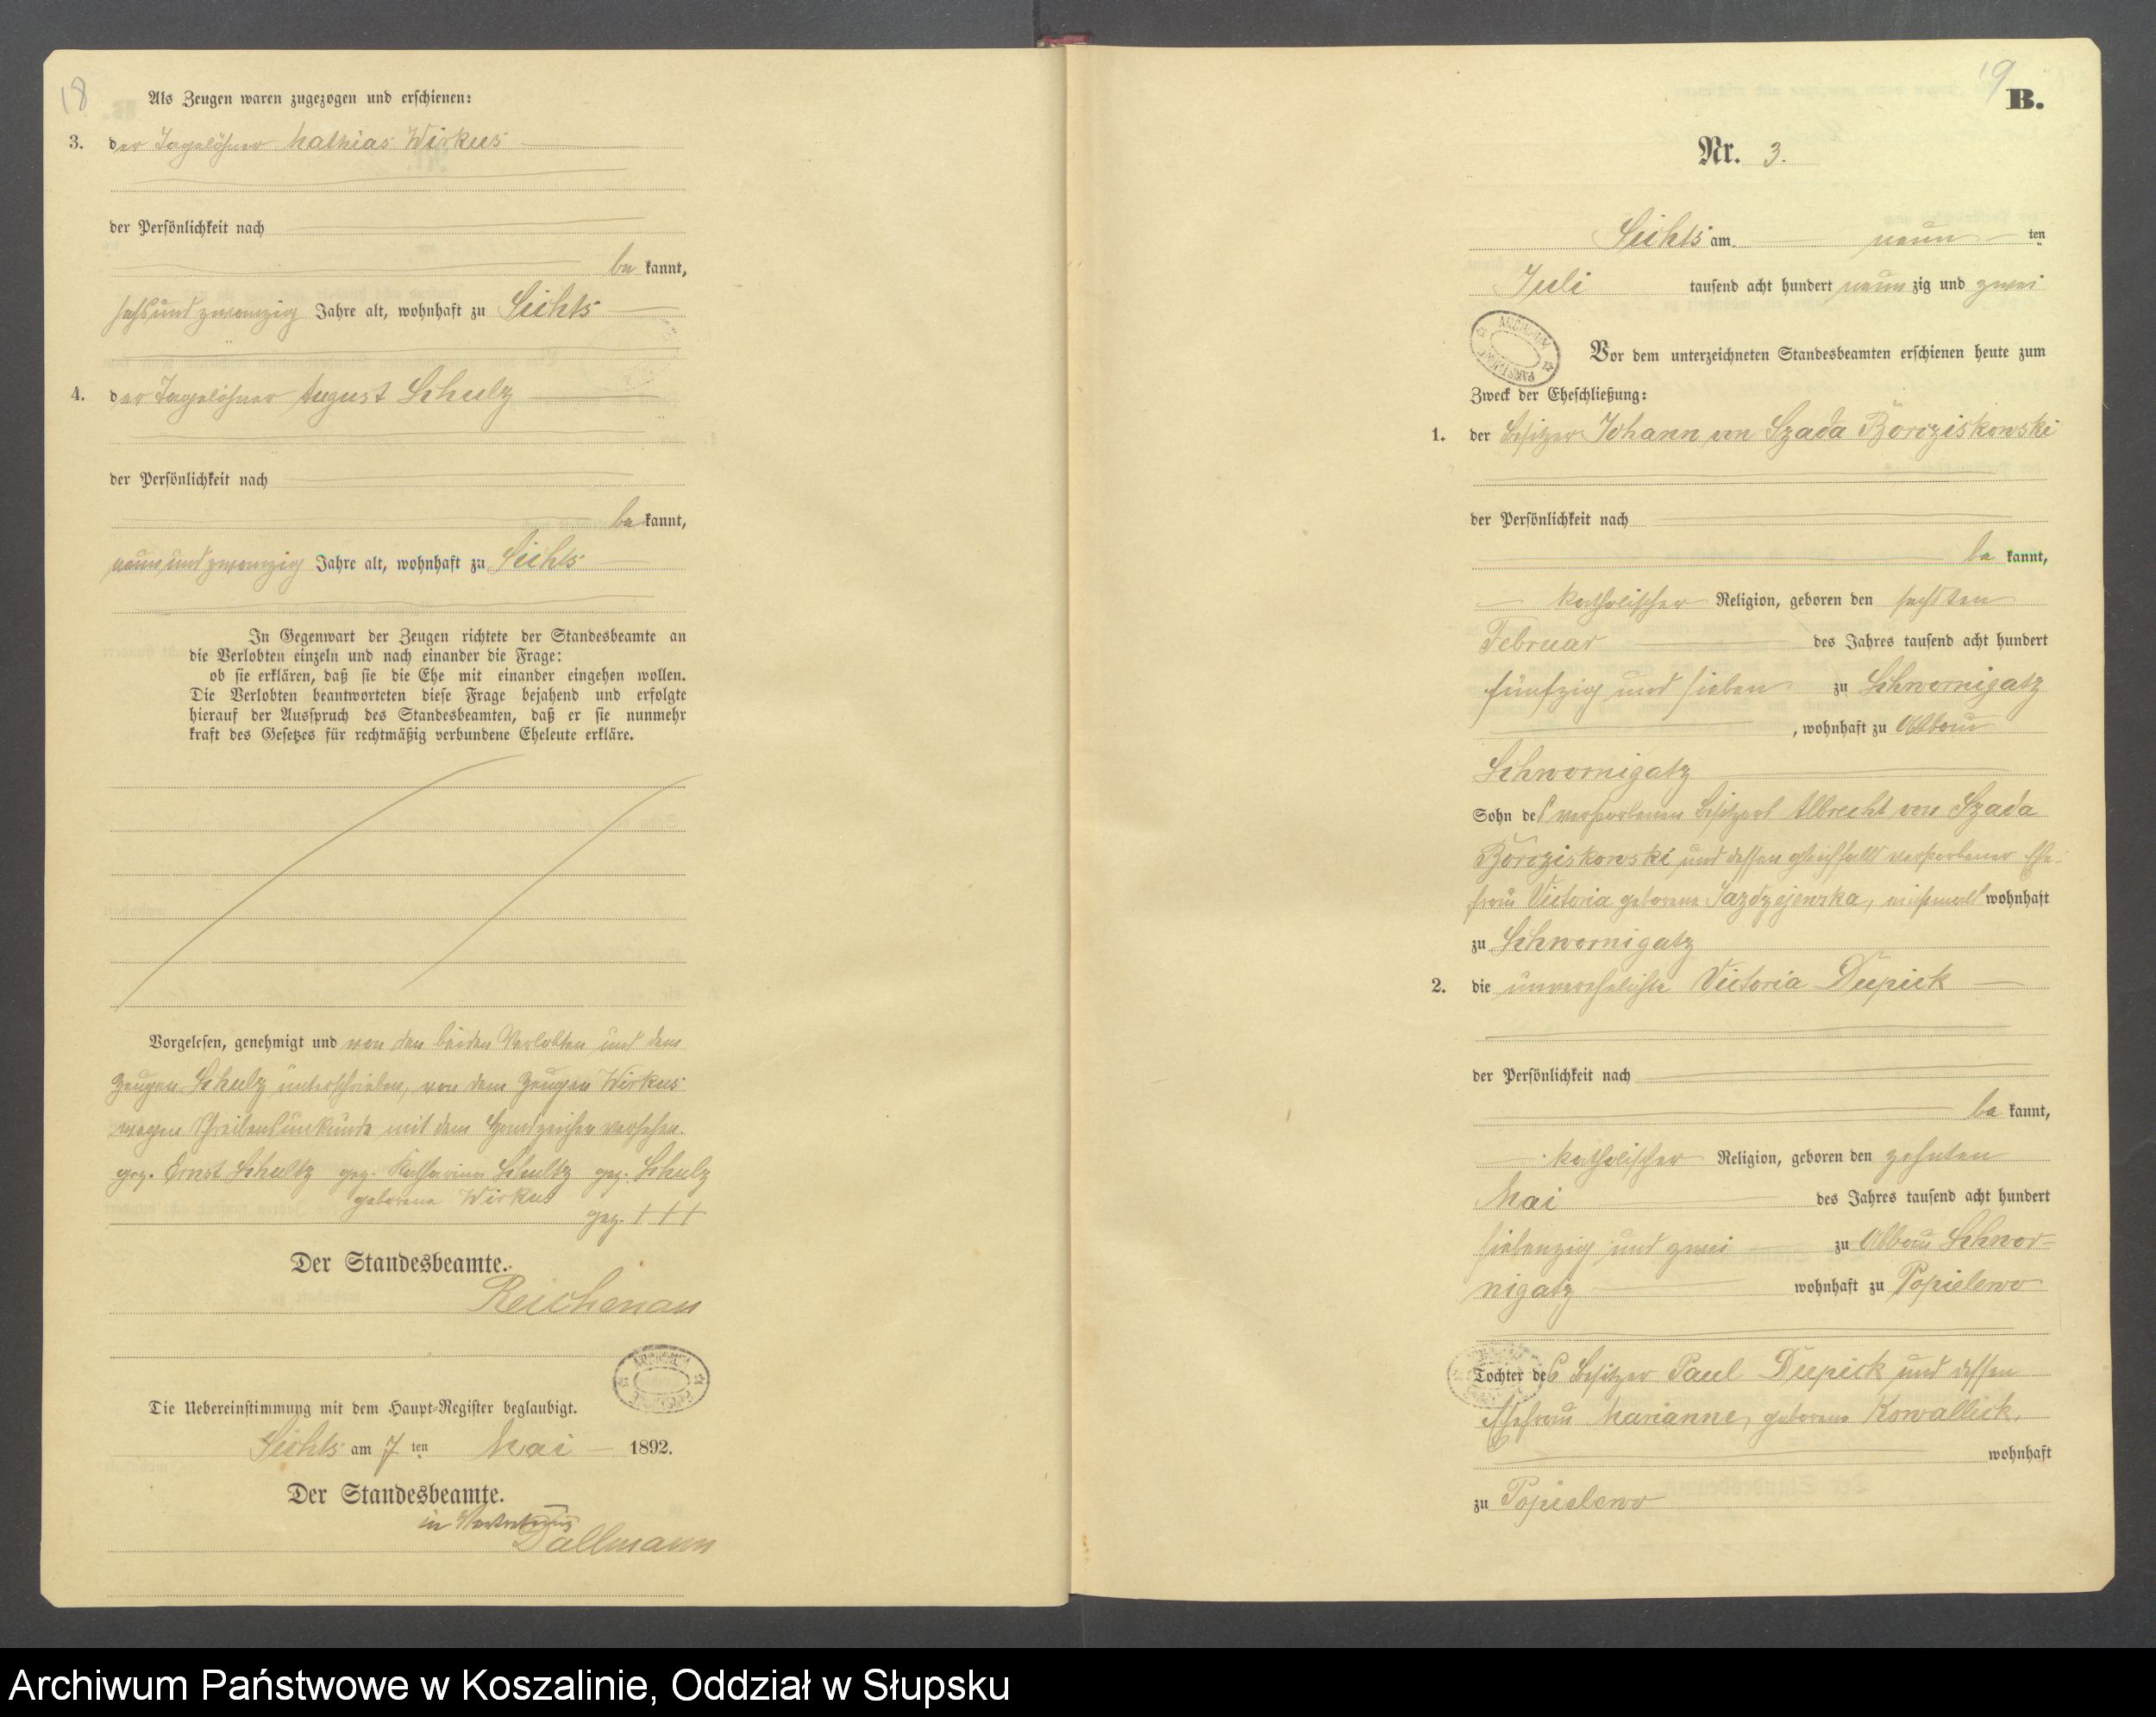 18
Als Zeugen waren zugezogen und erschienen:
3. der Tagelöhner Mathias Wirkus
der Persönlichkeit nach
be kannt,
sechs und zwanzig Jahre alt, wohnhaft zu Sichts
4. der Tagelöhner August Schulz
der Persönlichkeit nach
be kannt,
neun und zwanzig Jahre alt, wohnhaft zu Sichts
In Gegenwart der Zeugen richtete der Standesbeamte an
die Verlobten einzeln und nach einander die Frage:
ob sie erklären, daß sie die Ehe mit einander eingehen wollen.
Die Verlobten beantworteten diese Frage bejahend und erfolgte
hierauf der Ausspruch des Standesbeamten, daß er sie nunmehr
kraft des Gesetzes für rechtmäßig verbundene Eheleute erkläre.
Vorgelesen, genehmigt und von den beiden Verlobten und dem
Zeugen Schulz unterschrieben, von dem Zeugen Wirkus
wegen Schreibensunkunde mit dem Handzeichen versehen.
gez. Ernst Schultz gez. Katharina Schultz gez. Schulz
geborene Wirkus
gez. +++
Der Standesbeamte.
Reichenau
Die Uebereinstimmung mit dem Haupt-Register beglaubigt.
Sichts am 7 ten Mai 1892.
Der Standesbeamte.
in Vertretung
Dallmann
19
B.
Nr. 3.
Sichts am neun ten
Juli tausend acht hundert neun zig und zwei
ARCHIWUM PAŃSTWOWE
Vor dem unterzeichneten Standesbeamten erschienen heute zum
Zweck der Eheschließung:
1. der Besitzer Johann von Szada Borziskowski
der Persönlichkeit nach
be kannt,
katholischer Religion, geboren den sechsten
Februar des Jahres tausend acht hundert
fünfzig und sieben zu Schwornigatz
, wohnhaft zu Abbau
Schwornigatz
Sohn des verstorbenen Besitzers Albrecht von Szada
Borziskowski und dessen gleichfalls verstorbener Ehe-
frau Victoria geborene Jazdzejewska, wohnhaft
zu Schwornigatz
2. die unverehelichte Victoria Deepick
der Persönlichkeit nach
be kannt,
katholischer Religion, geboren den zehnten
Mai des Jahres tausend acht hundert
siebenzig und zwei zu Abbau Schwor-
nigatz wohnhaft zu Popielewo
Tochter des Besitzer Paul Deepick und dessen
Ehefrau Marianne, geborene Kowallick,
wohnhaft
zu Popielewo
Archiwum Państwowe w Koszalinie, Oddział w Słupsku